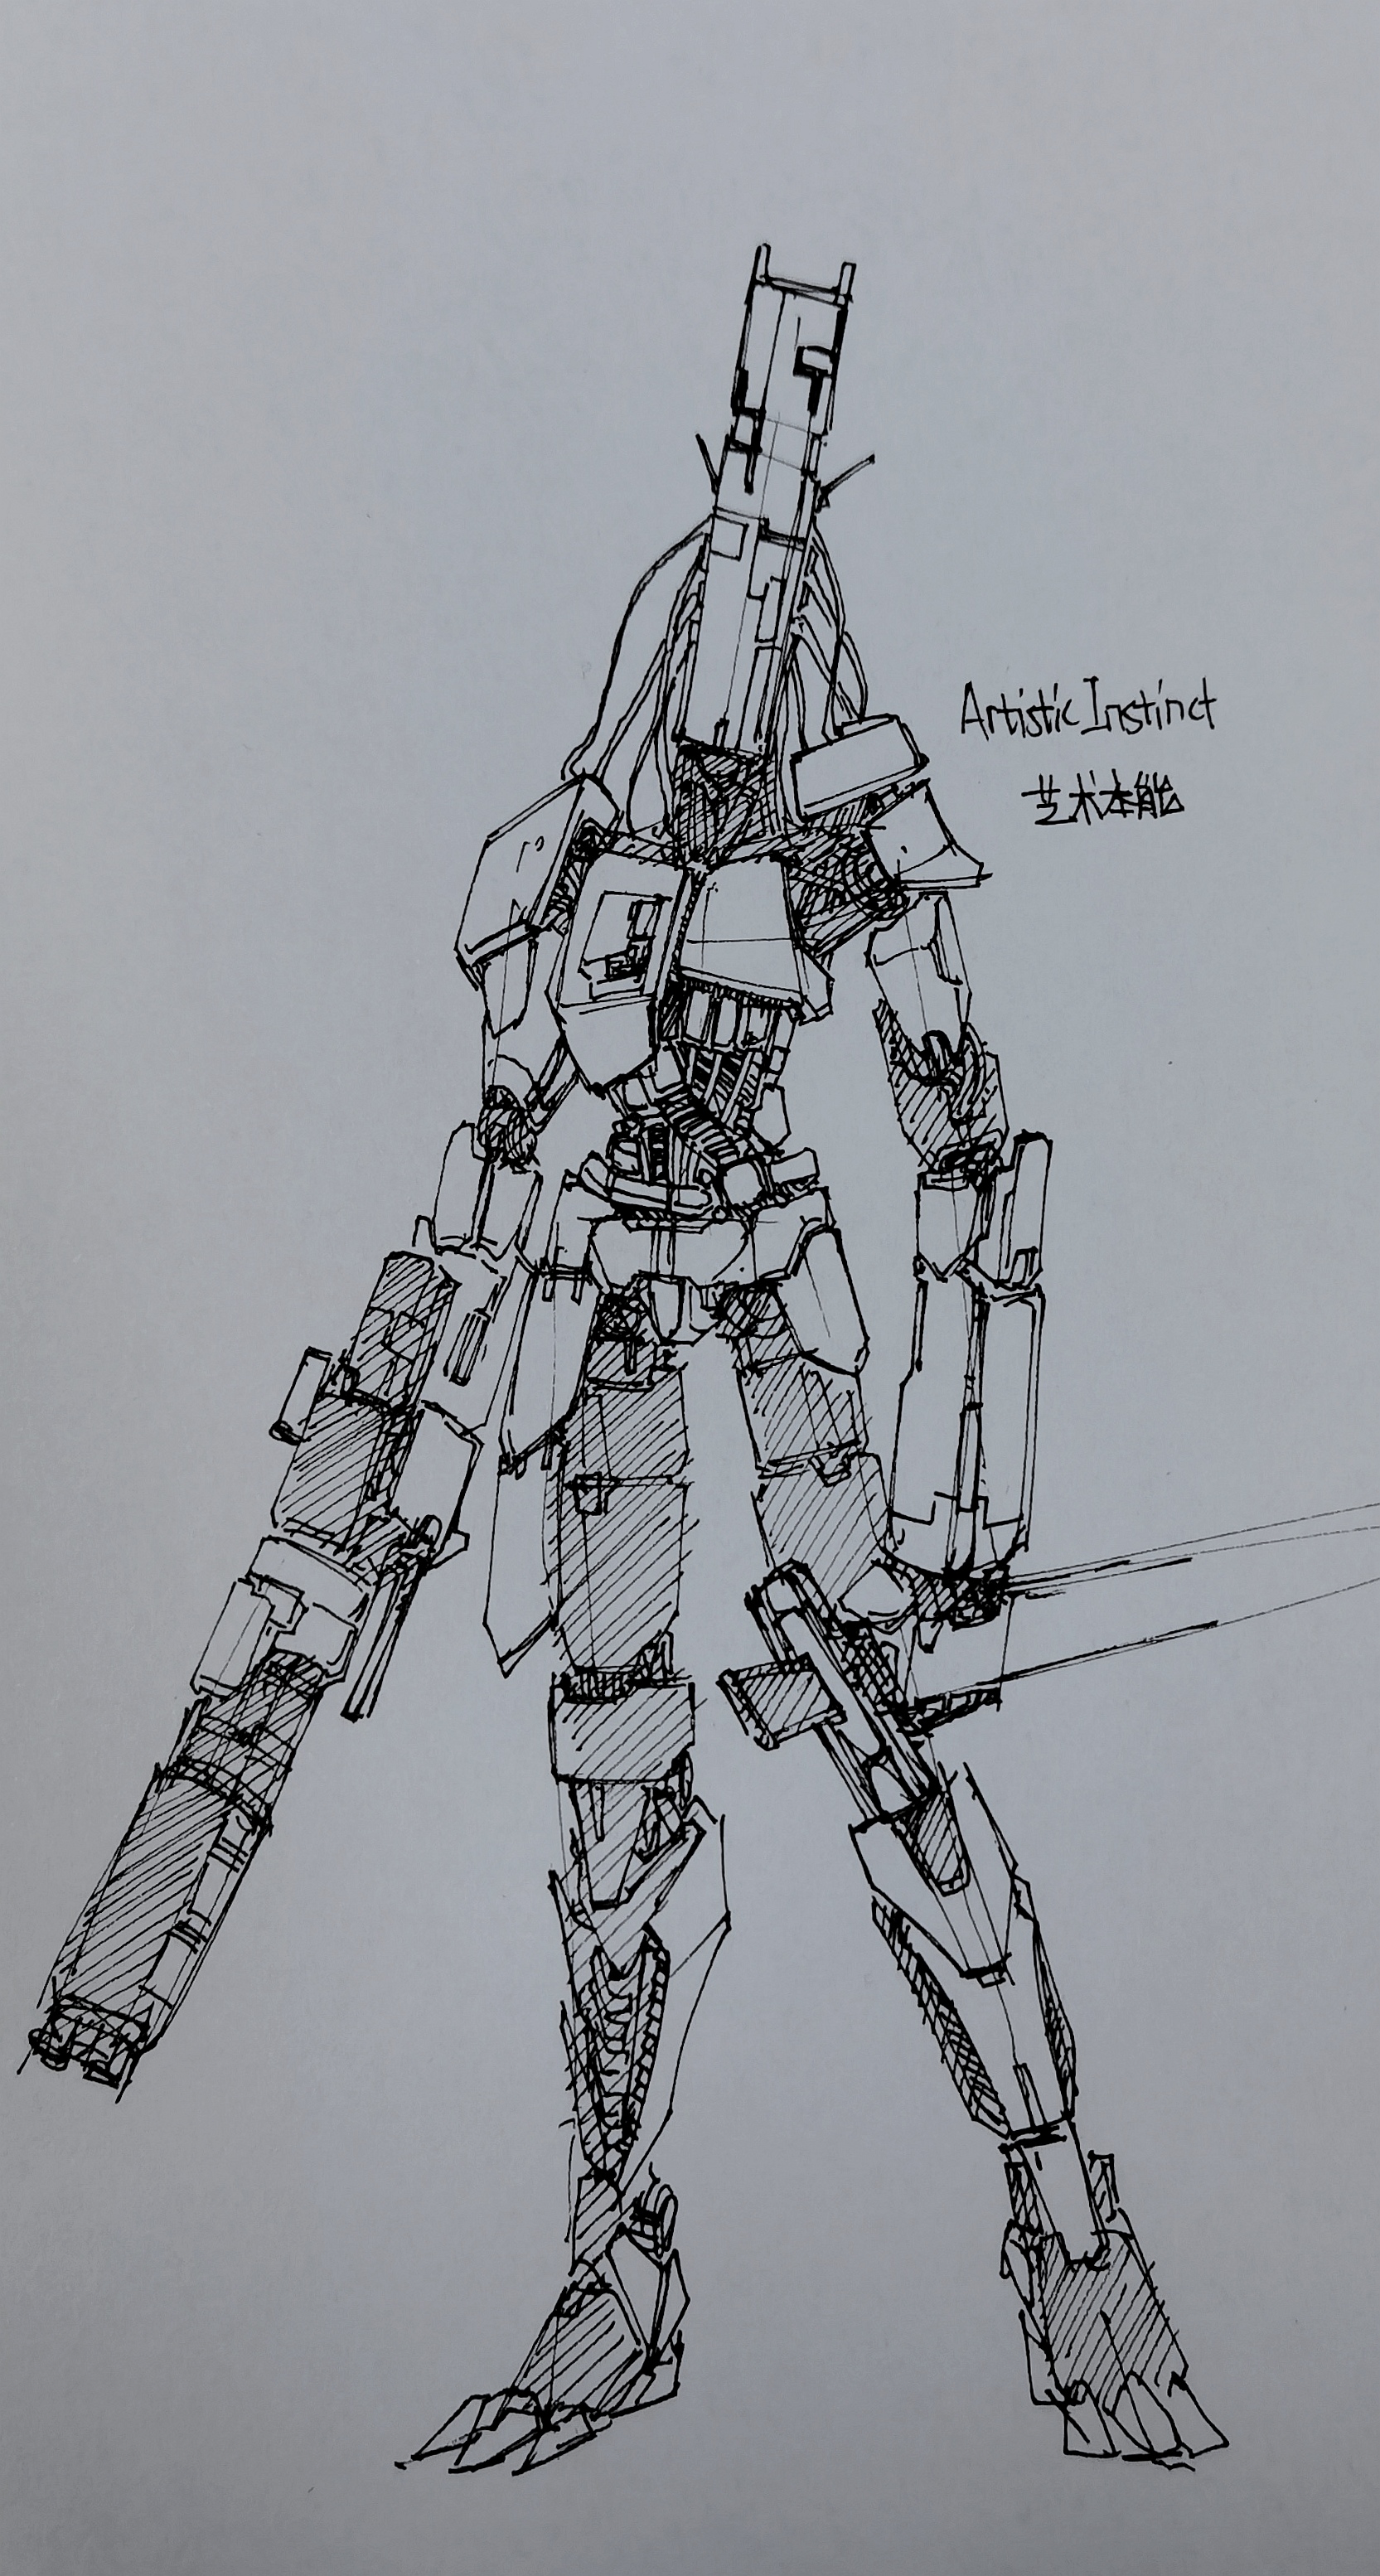 Artistic Instinct
艺术本能